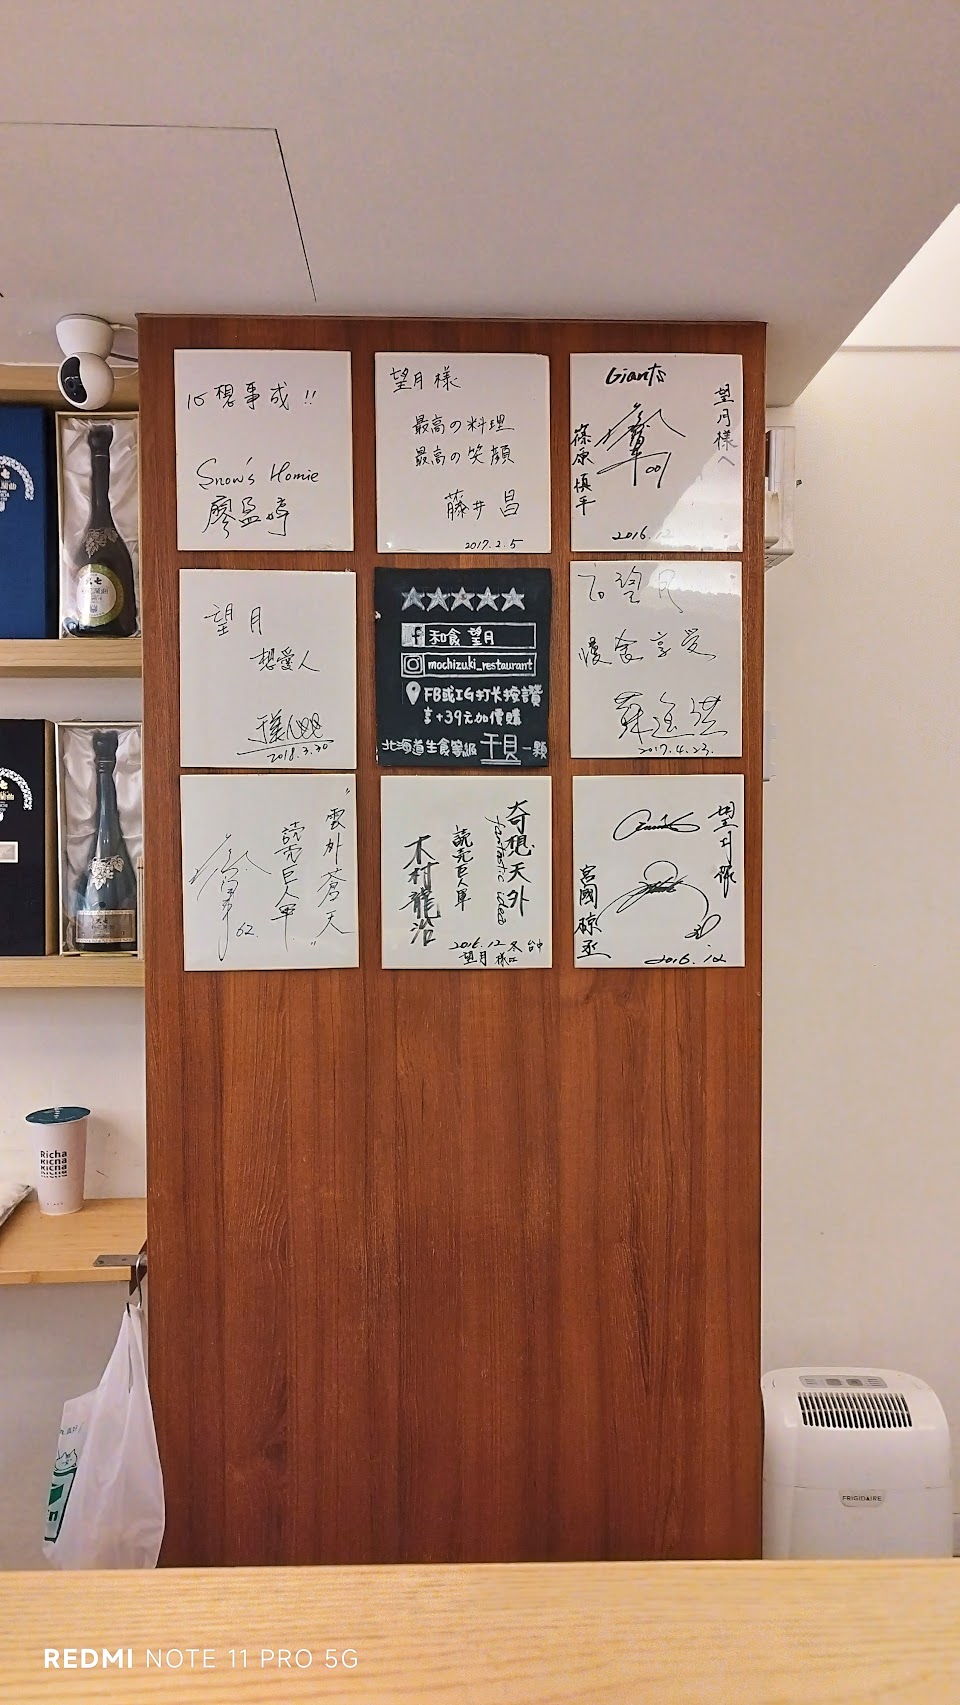 心想事成!!
Snow's Homie
廖盈婷
望月様
最高の料理
最高の笑顔
藤井 昌
2017.2.5
Giants
望月様へ
篠原慎平
001
2016.12
望月
想愛人
2018.3.30
★★★★★
和食 望月
mochizuki_restaurant
FB或IG打卡按讚
享+39元加價購
北海道生食等級干貝一顆
望月
慢食享受
2017.4.23.
"雲外蒼天"
読売巨人軍
62.
奇想天外
fantastic idea
読売巨人軍
木村龍治
2016.12 冬 台中
望月様江
望月様
宮國椋丞
2016.12
Richa
FRIGIDAIRE
REDMI NOTE 11 PRO 5G